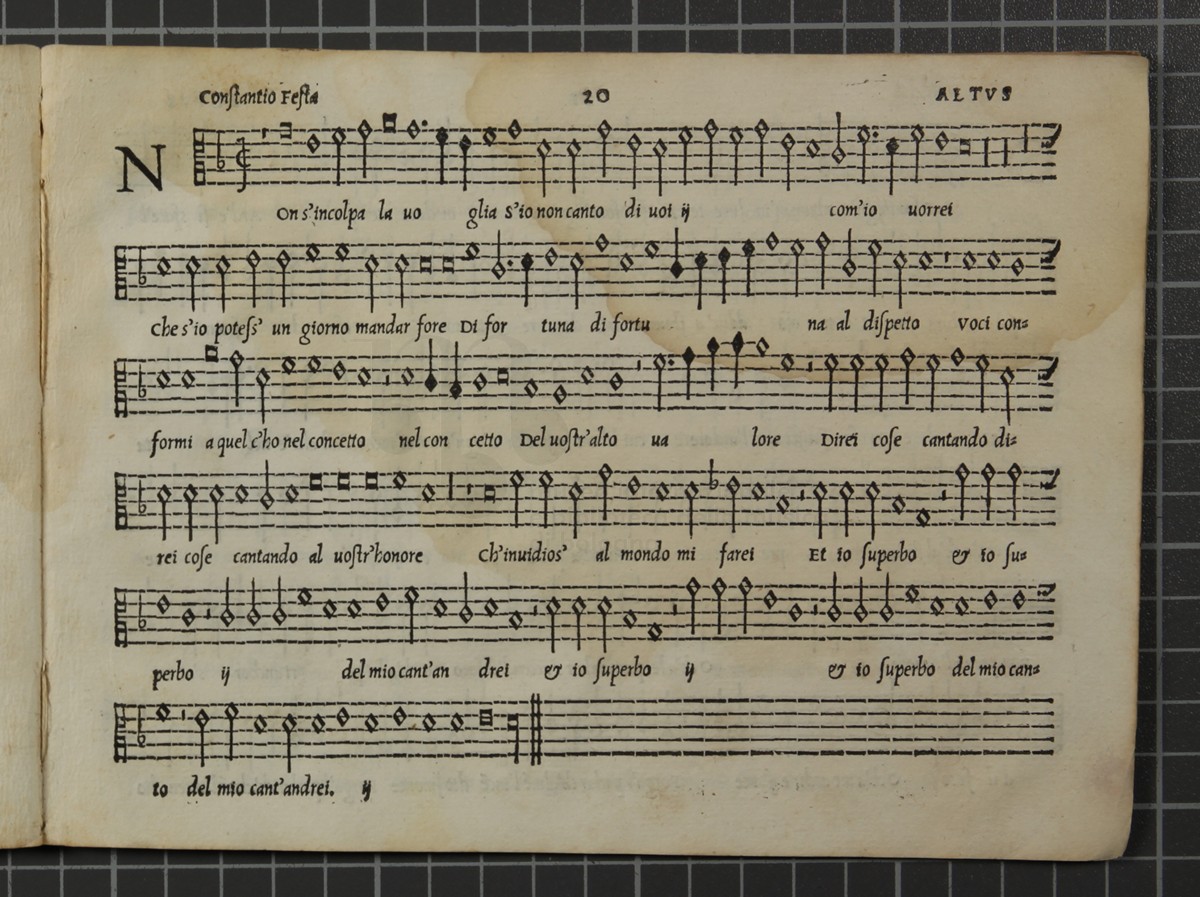 Conſtantio Feſta 20 ALTVS
NOn s'incolpa la uo glia S'io non canto di uoi ij com'io uorrei
Che s'io poteſs' un giorno mandar fore Di for tuna di fortu na al diſpetto Voci con=
formi a quel c'ho nel concetto nel con cetto Del uoſtr'alto ua lore Direi coſe cantando di=
rei coſe cantando al uoſtr'honore Ch'inuidios' al mondo mi farei Et io ſuperbo & io ſu=
perbo ij del mio cant'an drei & io ſuperbo ij & io ſuperbo del mio can=
to del mio cant'andrei. ij